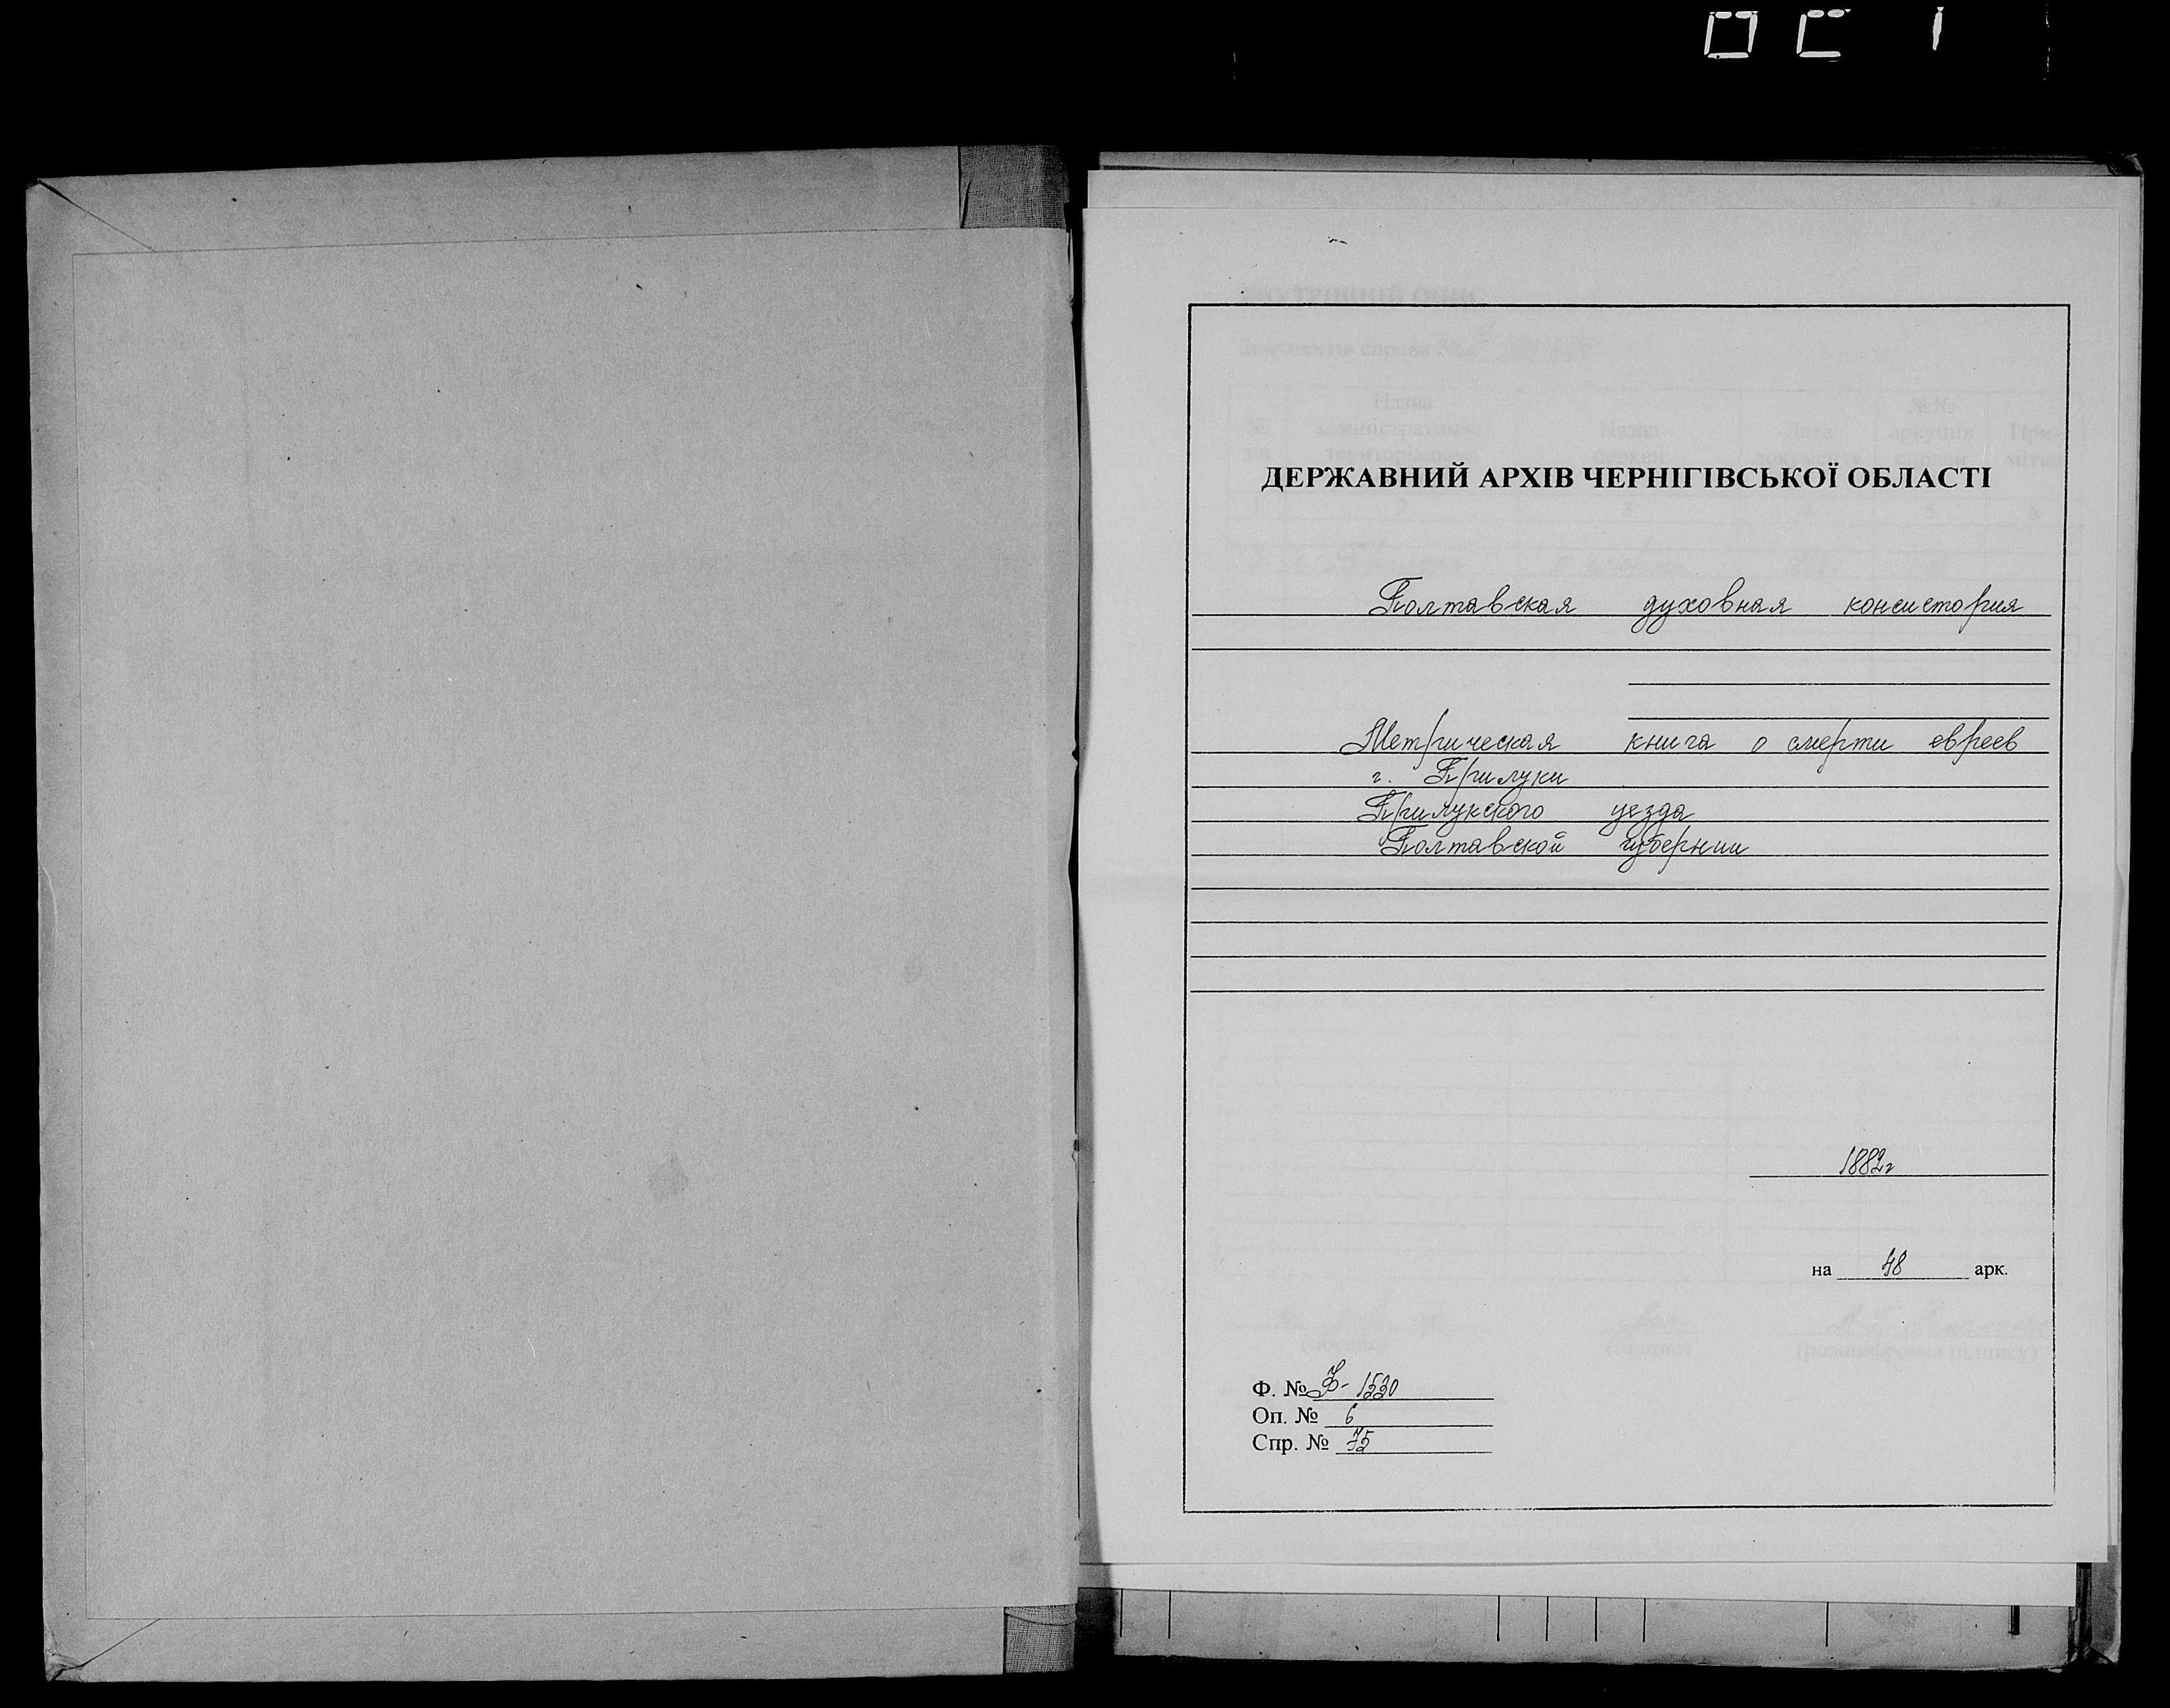 ДЕРЖАВНИЙ АРХІВ ЧЕРНІГІВСЬКОЇ ОБЛАСТІ
Полтавская духовная консистория
Метрическая книга о смерти евреев
г. Прилуки
Прилукского уезда
Полтавской губернии
1882г
на 48 арк.
Ф. № Ф- 1520
Оп. № 6
Спр. № 75